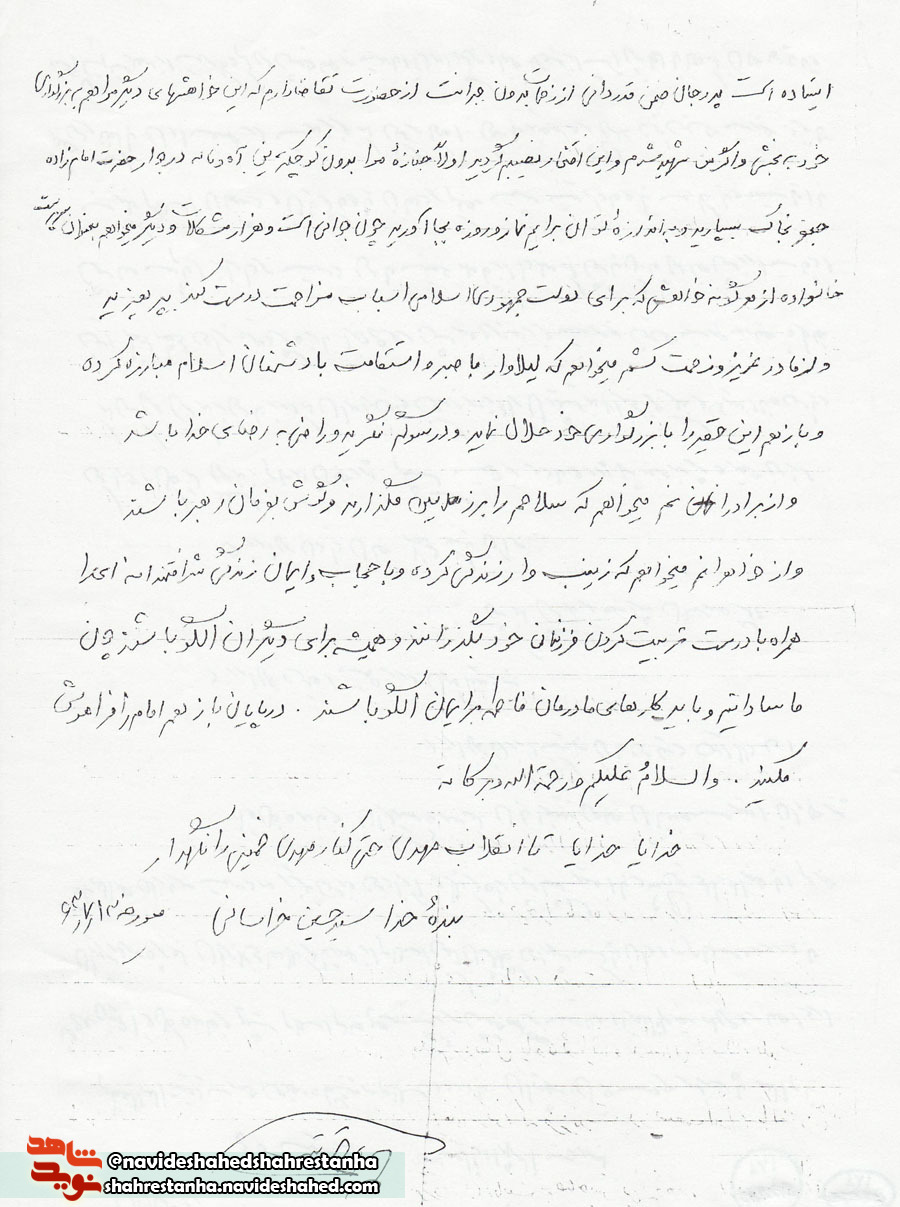 ایستاده است پدرجان ضمن قدردانی از زحمات بدون جرائت از حضورت تقاضا دارم که این خواهشهای دیگر مرا هم به بزرگواری
خود به بخشی و اگر من شهید شدم و این افتخار نصیبم گردید اولاً جنازهٔ مرا بدون کوچکترین آه و ناله در جوار حضرت امامزاده
جعفر بخاک بسپارید و به اندازهٔ توان برایم نماز و روزه بجا آورید چون جوانی است و هزار مشکلات و دیگر میخواهم بعنوان سرپرست
خانواده از هرگونه خواهشی که برای دولت جمهوری اسلامی اسباب مزاحمت درست کند بپرهیزید
و از مادر عزیز و زحمت کشم میخواهم که لیلاوار با صبر و استقامت با دشمنان اسلام مبارزه کرده
و باز هم این حقیر را با بزرگواری خود حلال نماید و در سوگم نگرید و راضی به رضای خدا باشد
و از برادرانم میخواهم که سلاحم را بر زمین مگذارند و گوش بفرمان رهبر باشند
و از خواهرانم میخواهم که زینب وار زندگی کرده و با حجاب و ایمان زندگی شرافتمندانه ای را
همراه با درست تربیت کردن فرزندان خود بگذرانند و همیشه برای دیگران الگو باشند چون
ما ساداتیم و باید کارهای مادرمان فاطمه برایمان الگو باشند . در پایان باز هم امام را فراموش
مکنید . والسلامُ علیکم و رحمة الله و برکاته
خدایا خدایا تا انقلاب مهدی حتی کنار مهدی خمینی را نگهدار
بندهٔ خدا سید حسین خراسانی مورخه
نوید شاهد
@navideshahedshahrestanha
shahrestanha.navideshahed.com